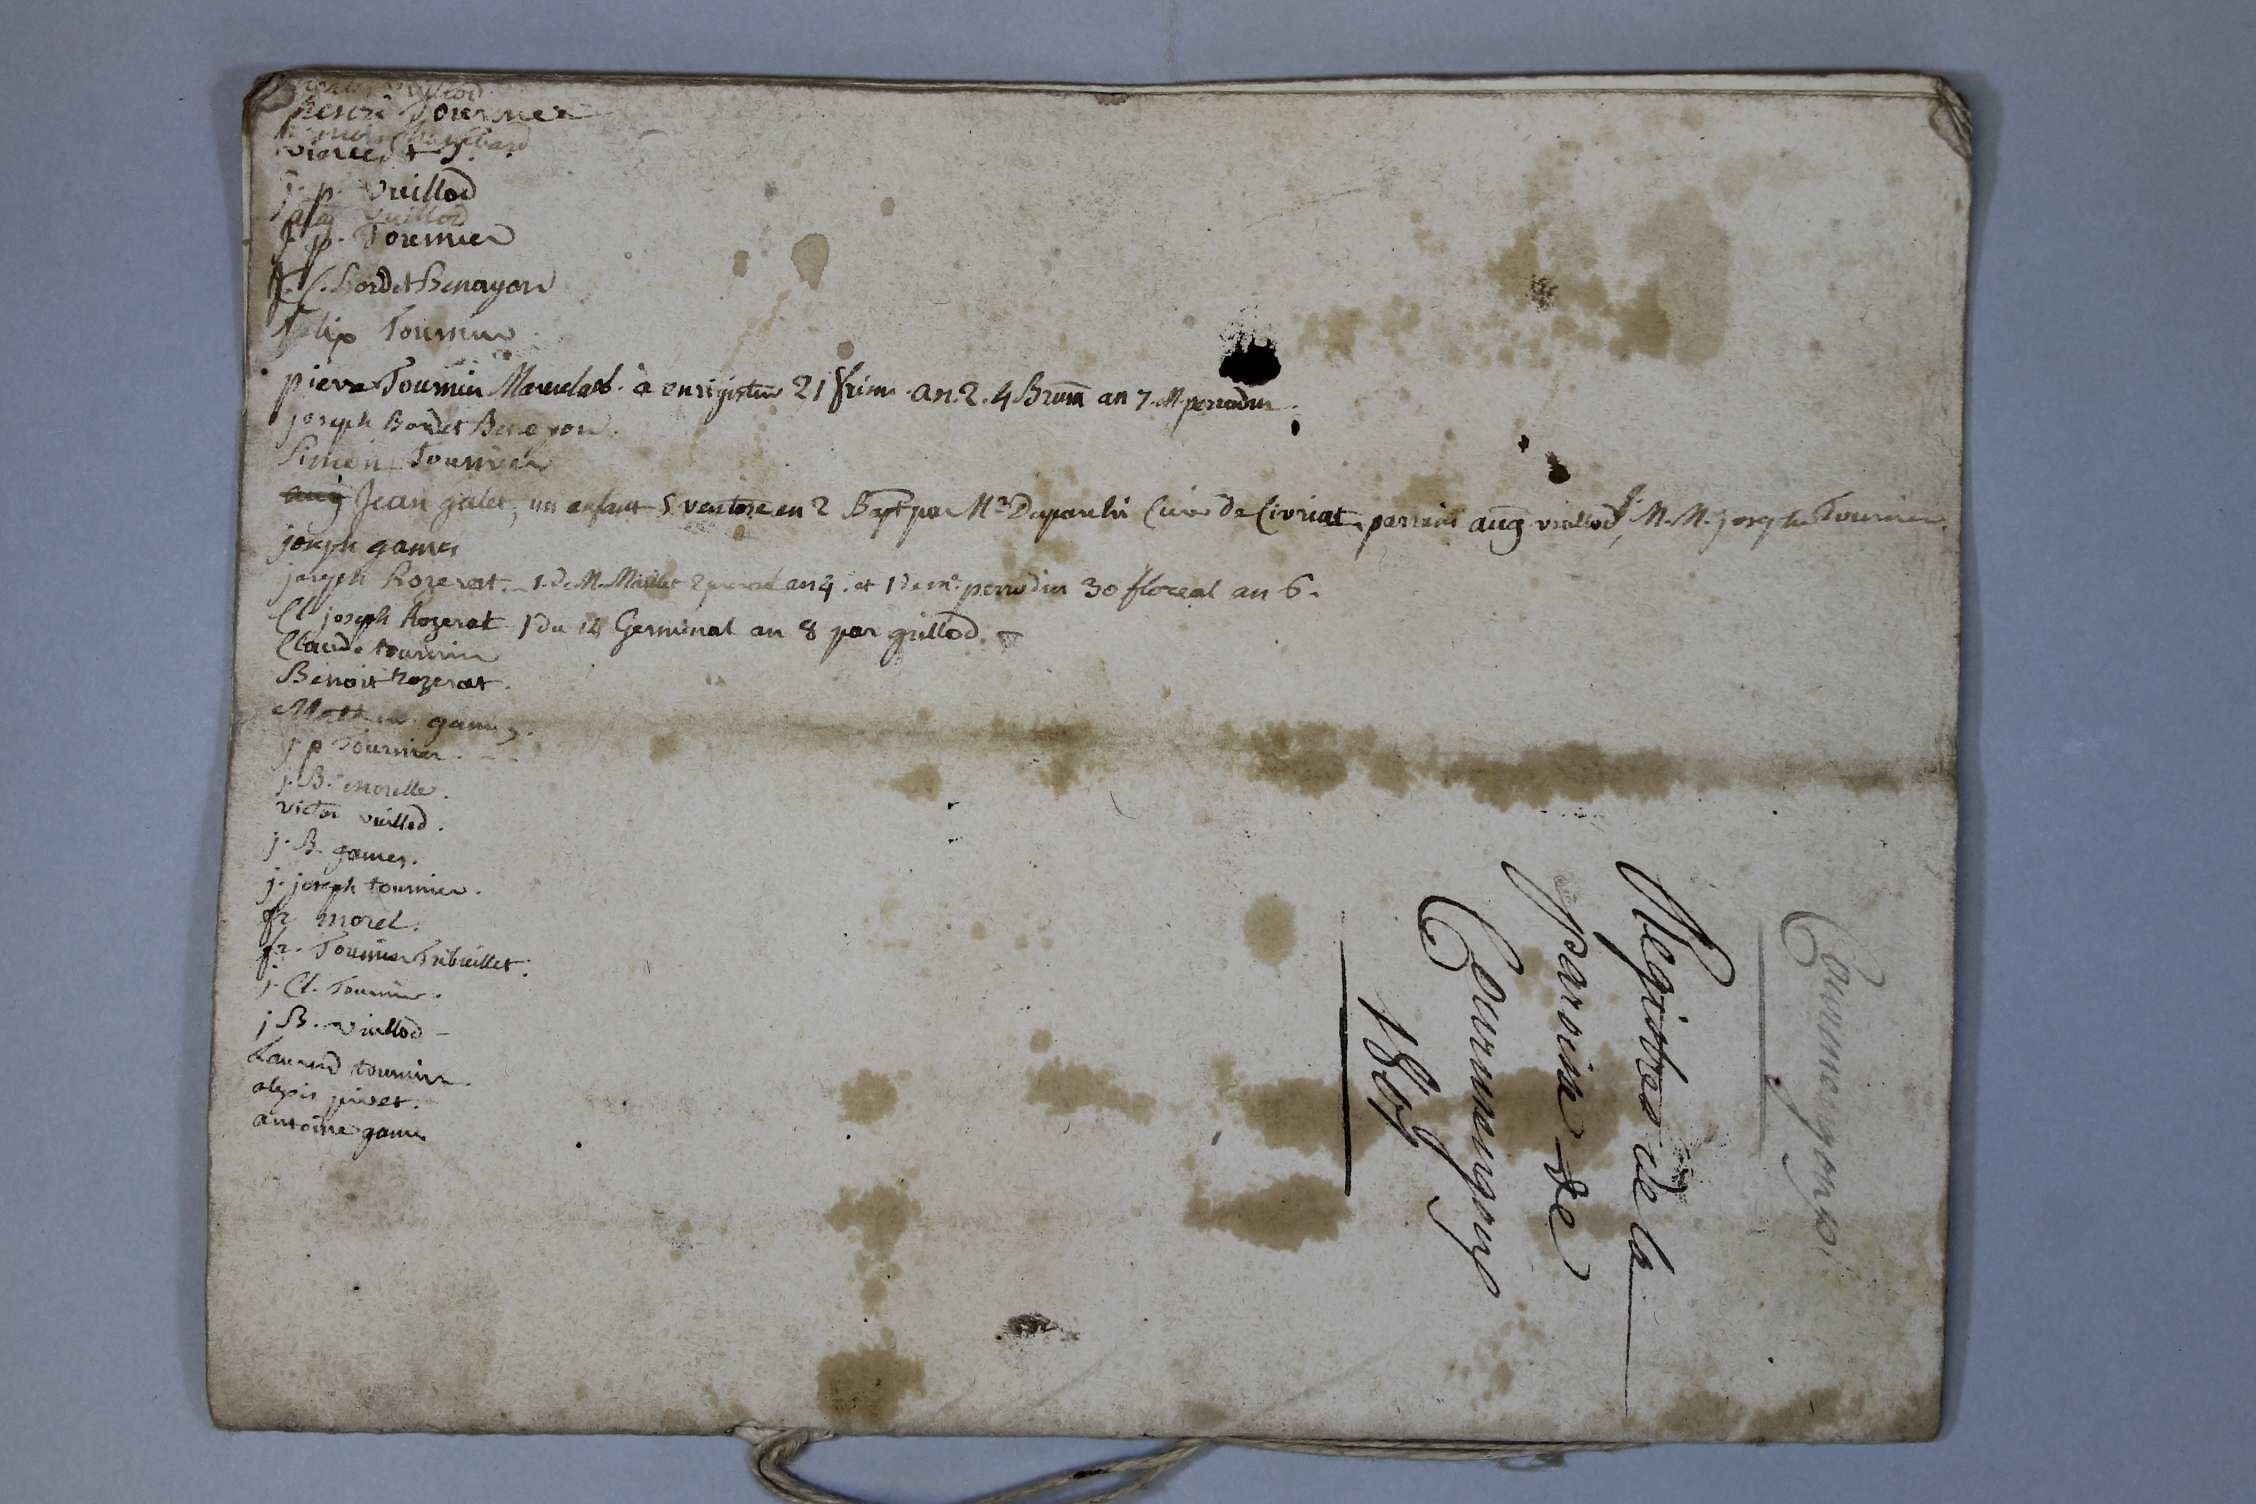 henri Tournier
vincent
j. p. vuillod
aug vuillod
j. p. Tournier
Bordet Benayon
felix Tournier
pierre Tournier à enrigistrer 21 frim. an. 2. 4 Brum an 7. M. perrodin.
joseph Bordet Benoyon.
Simeon Tournier
Jean galet, un enfant 5 ventose an 2 Bapt par Mr. Dupanlin Curé de Civriat, parrain aug vuillod, M. M. josephe Tournier.
joseph games
joseph Rozerat. 1. de M. Maillet 2 an 4. et 1 de mr. perrodin 30 floreal an 6.
Cl joseph Rozerat 1 du 14 Germinal an 8 par grillod.
Claude tournier
Benoit Rozerat.
Mathieu games.
j p Tournier.
j. B. morelle.
victor vuillod.
j. B. games.
j. joseph tournier.
fr morel.
fr. Tournier Tribuillet.
j. Cl. Tournier.
j B. vuillod
Laurend tournier.
alexis privet.
antoine games
Cournengoux.
Registres de la
paroisse de
Cournengoux
1807